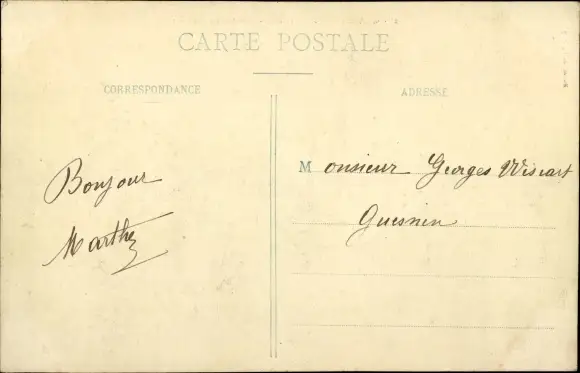 CARTE POSTALE
CORRESPONDANCE
ADRESSE
Bonjour
Marthe
Monsieur Georges Wiscart
Guesnin